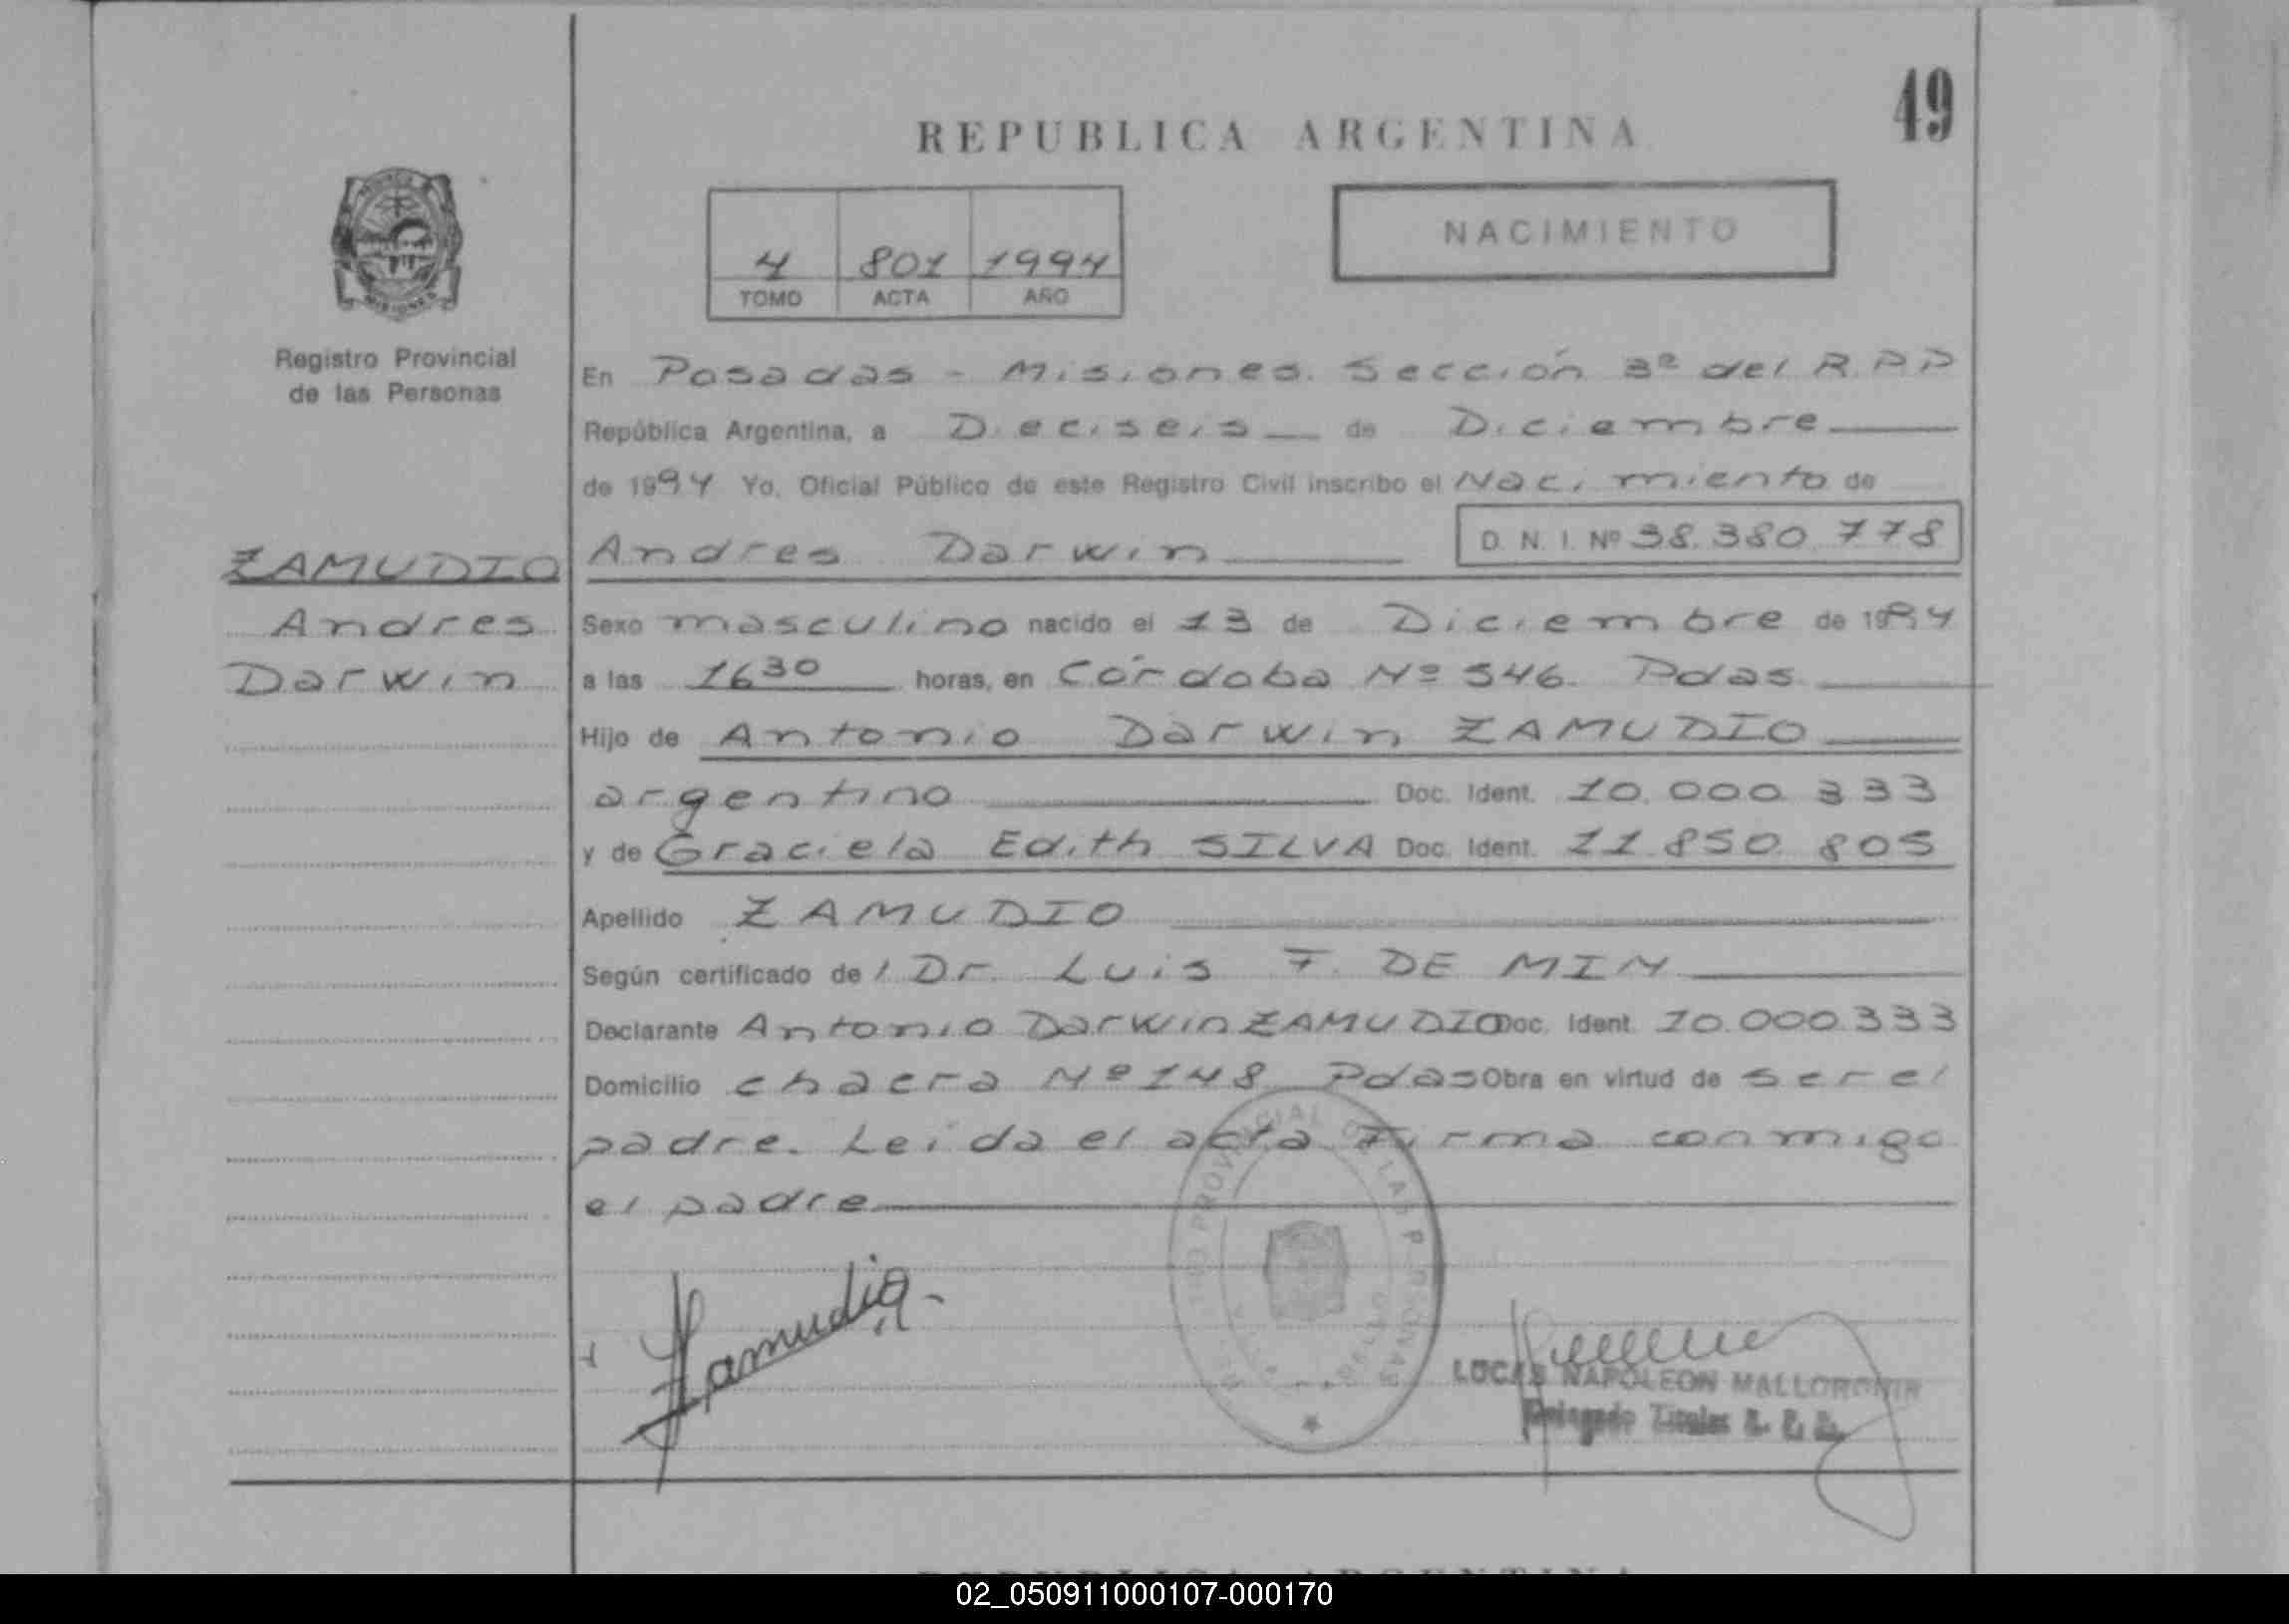 49
REPUBLICA ARGENTINA
NACIMIENTO
4 801 1994
TOMO ACTA AÑO
Registro Provincial
de las Personas
En Posadas - Misiones. Sección 3ª del R.P.P
República Argentina, a Dieciseis de Diciembre
de 1994 Yo, Oficial Público de este Registro Civil inscribo el Nacimiento de
ZAMUDIO
Andres
Darwin
Andres Darwin D. N. I. Nº 38.380.778
Sexo masculino nacido el 13 de Diciembre de 1994
a las 16 30 horas, en Córdoba Nº 546. Pdas
Hijo de Antonio Darwin ZAMUDIO
argentino Doc. Ident. 10.000.333
y de Graciela Edith SILVA Doc. Ident. 11.850.805
Apellido ZAMUDIO
Según certificado de / Dr. Luis F. DE MIN
Declarante Antonio Darwin ZAMUDIO Doc. Ident. 10.000.333
Domicilio chacra Nº 148 Pdas Obra en virtud de ser el
padre. Leida el acta Firma conmigo
el padre
Zamudio
LUCAS NAPOLEON
Delegado Titular R. P. P.
REPUBLICA ARGENTINA
02_050911000107-000170